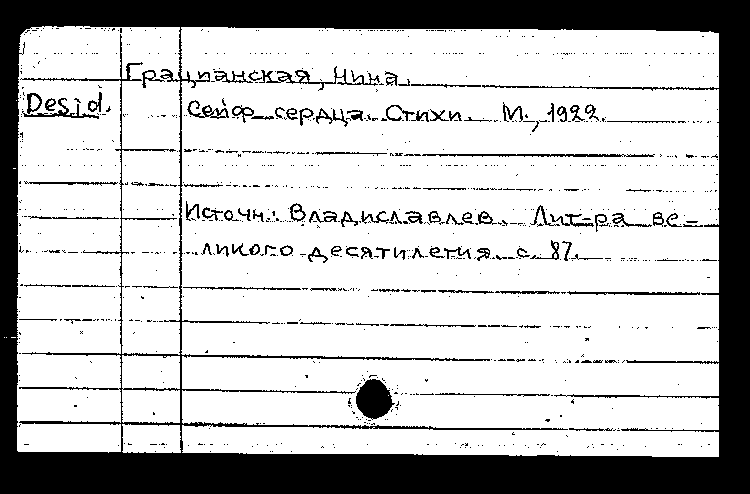 Грацианская, Нина.
Desid. Сейф сердца. Стихи. М., 1922.
Источн.: Владиславлев. Лит-ра ве-
ликого десятилетия. с. 87.